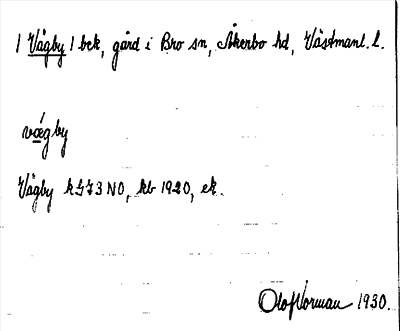 / Vägby / bek, gård i Bro sn, Åkerbo hd, Västmanl. l.
vǽgby
Vägby k 573 NO, kb 1920, ek.
Olof Norman 1930.